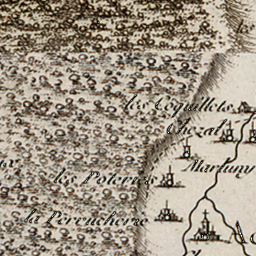 les Coquillets
Chezal
Martiny
les Poteries
la Perucherie